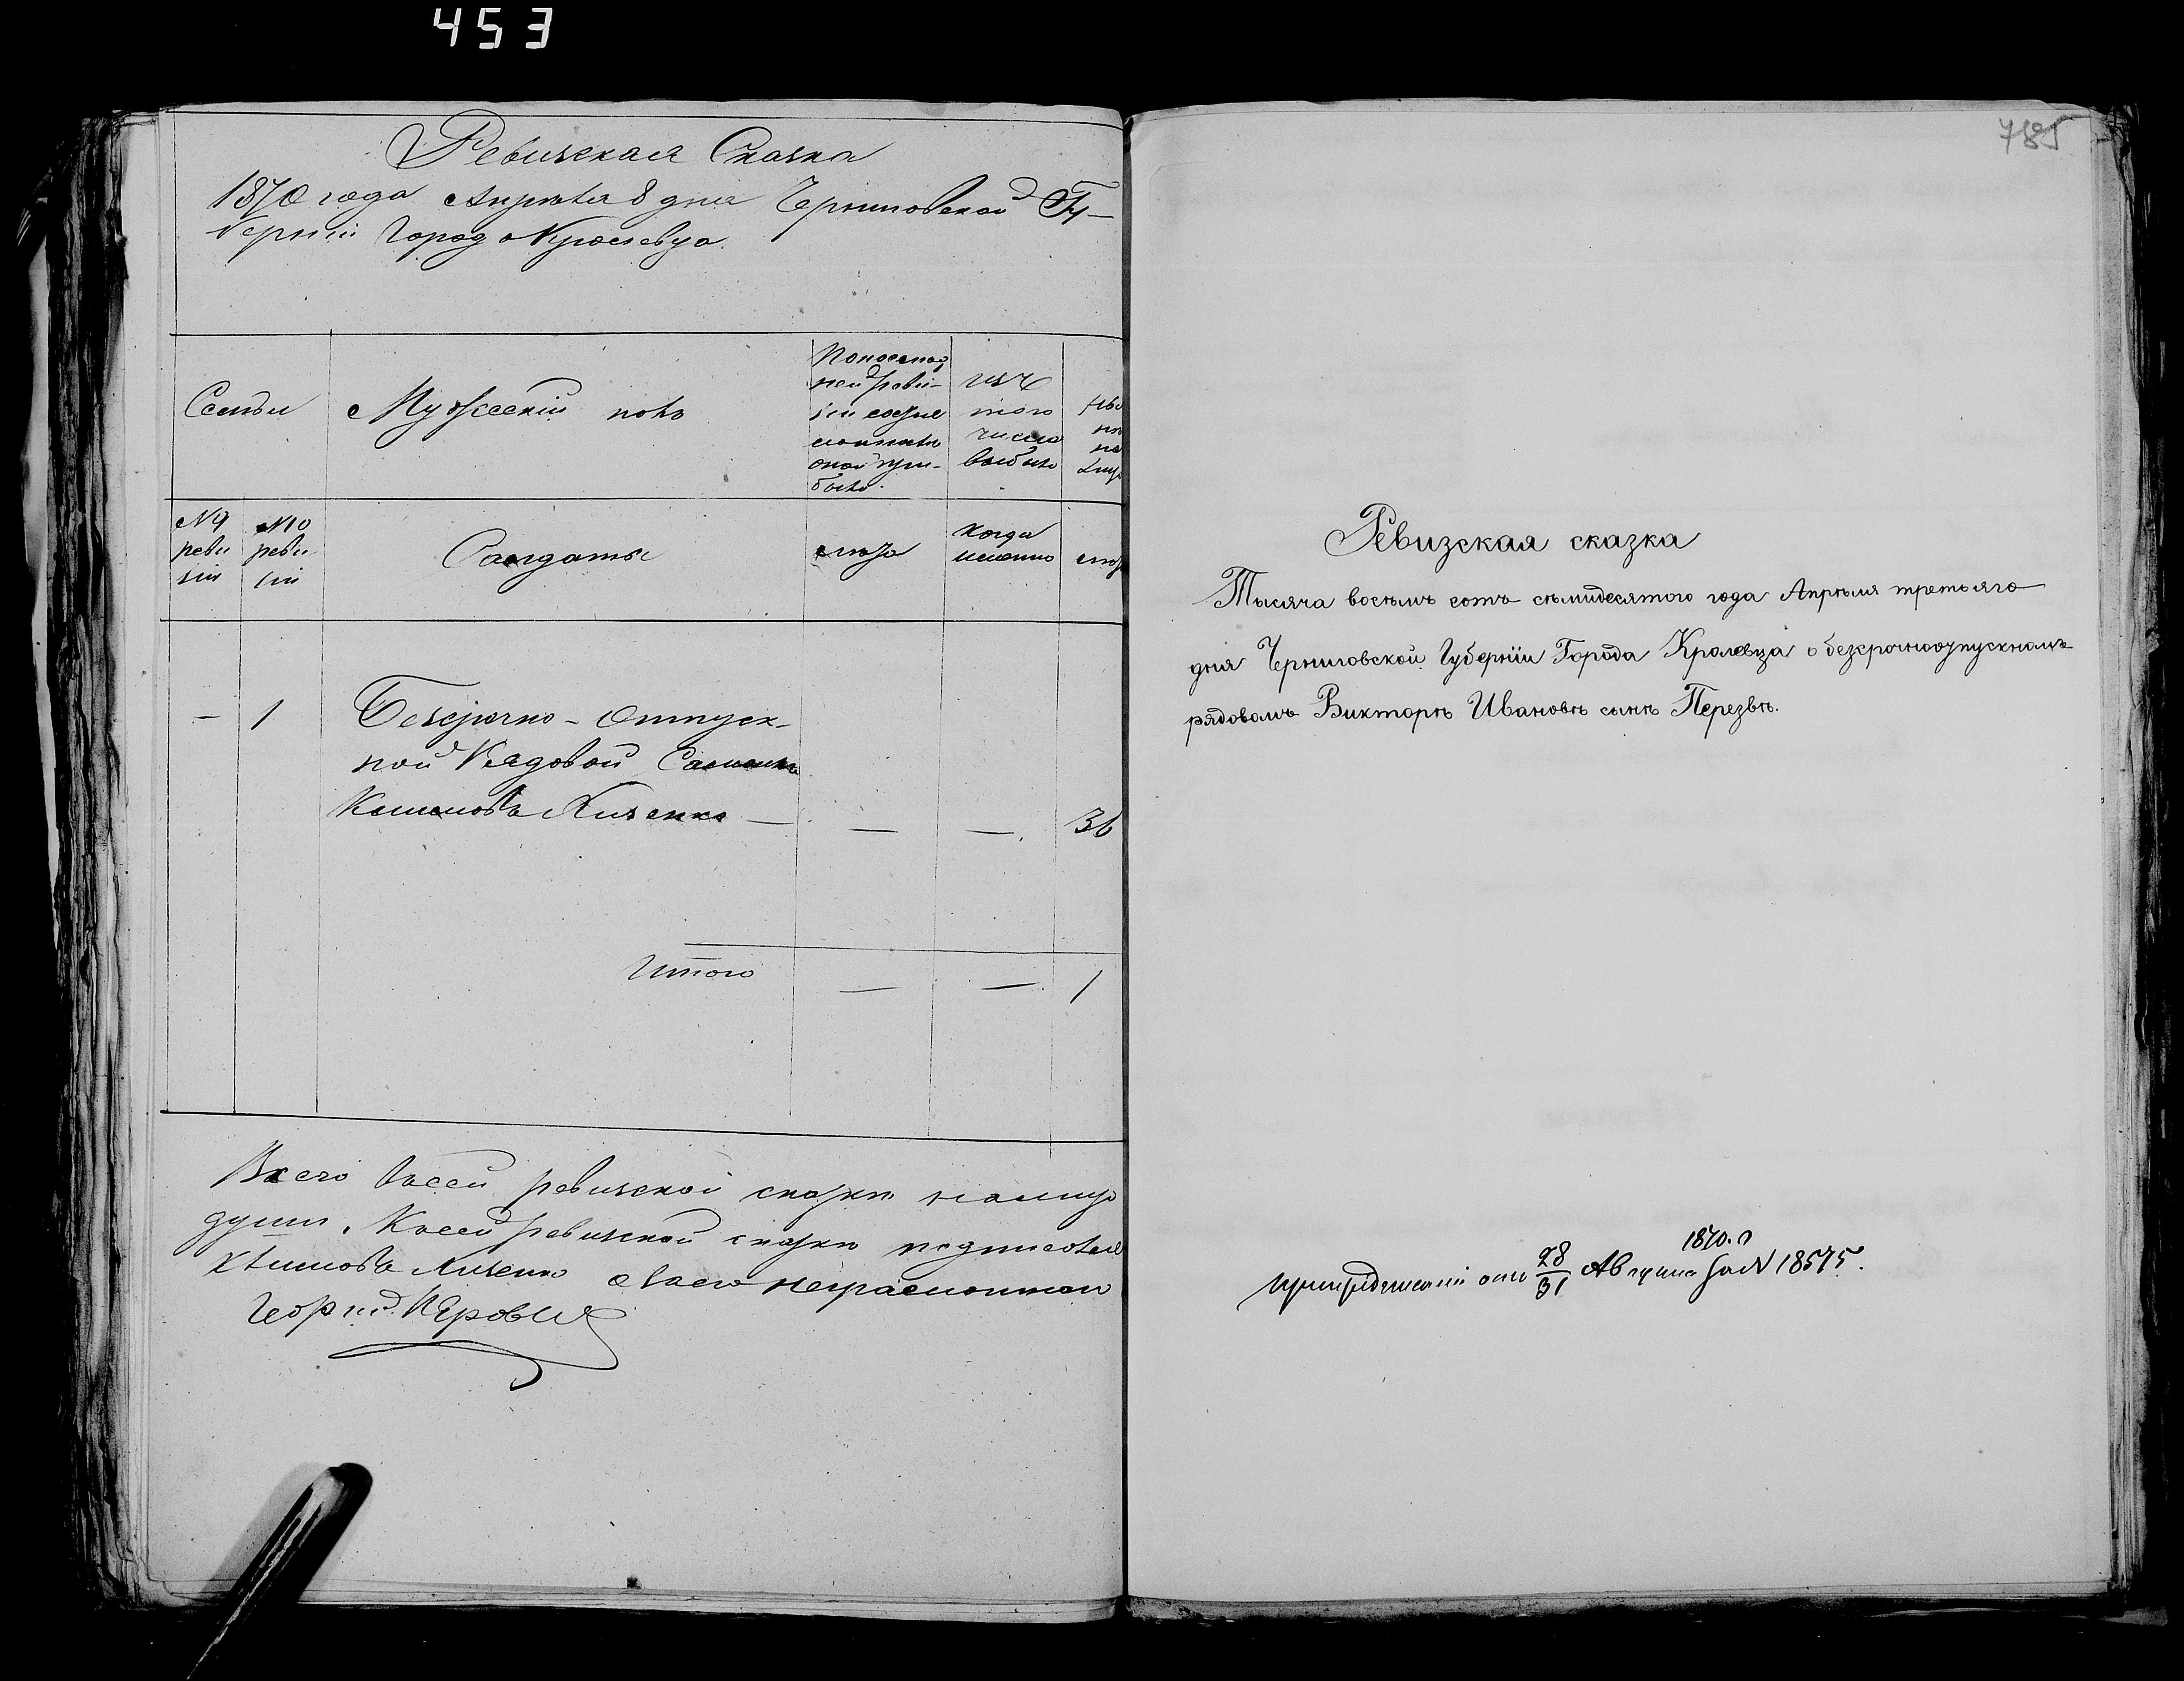 453
Ревизская Сказка
1870 года Апрѣля 8 дня Черниговской Гу-
берніи Город Кролевца
Семьи
Мужескій полъ
По послѣд
ней реви-
зіи состоя
ло и послѣ
оной при-
было.
изъ
того
числа
выбыло
Ны
нѣ
на
лицо
№ 9
реви
зіи
№ 10
реви
зіи
Салдаты
лѣта
когда
именно
лѣта
— 1 Безсрочно-Отпуск-
ной Рядовой
Климовъ Лизенко — — — 36
Итого — — 1
Всего в сей ревизской сказки налицо
души. К сей ревизской сказки подписался
Климовъ Лизенко а за его неграмотнаго
Георгій
785
Ревизская сказка
Тысяча восѣмъ сотъ сѣмидесятого года Апрѣля третьяго
дня Черниговской Губерніи Города Кролевца о безсрочноотпускномъ
рядовомъ Викторѣ Ивановѣ сынѣ Перезвѣ.
1870. г
при предписаніи отъ 28/31 Августа за № 18575.